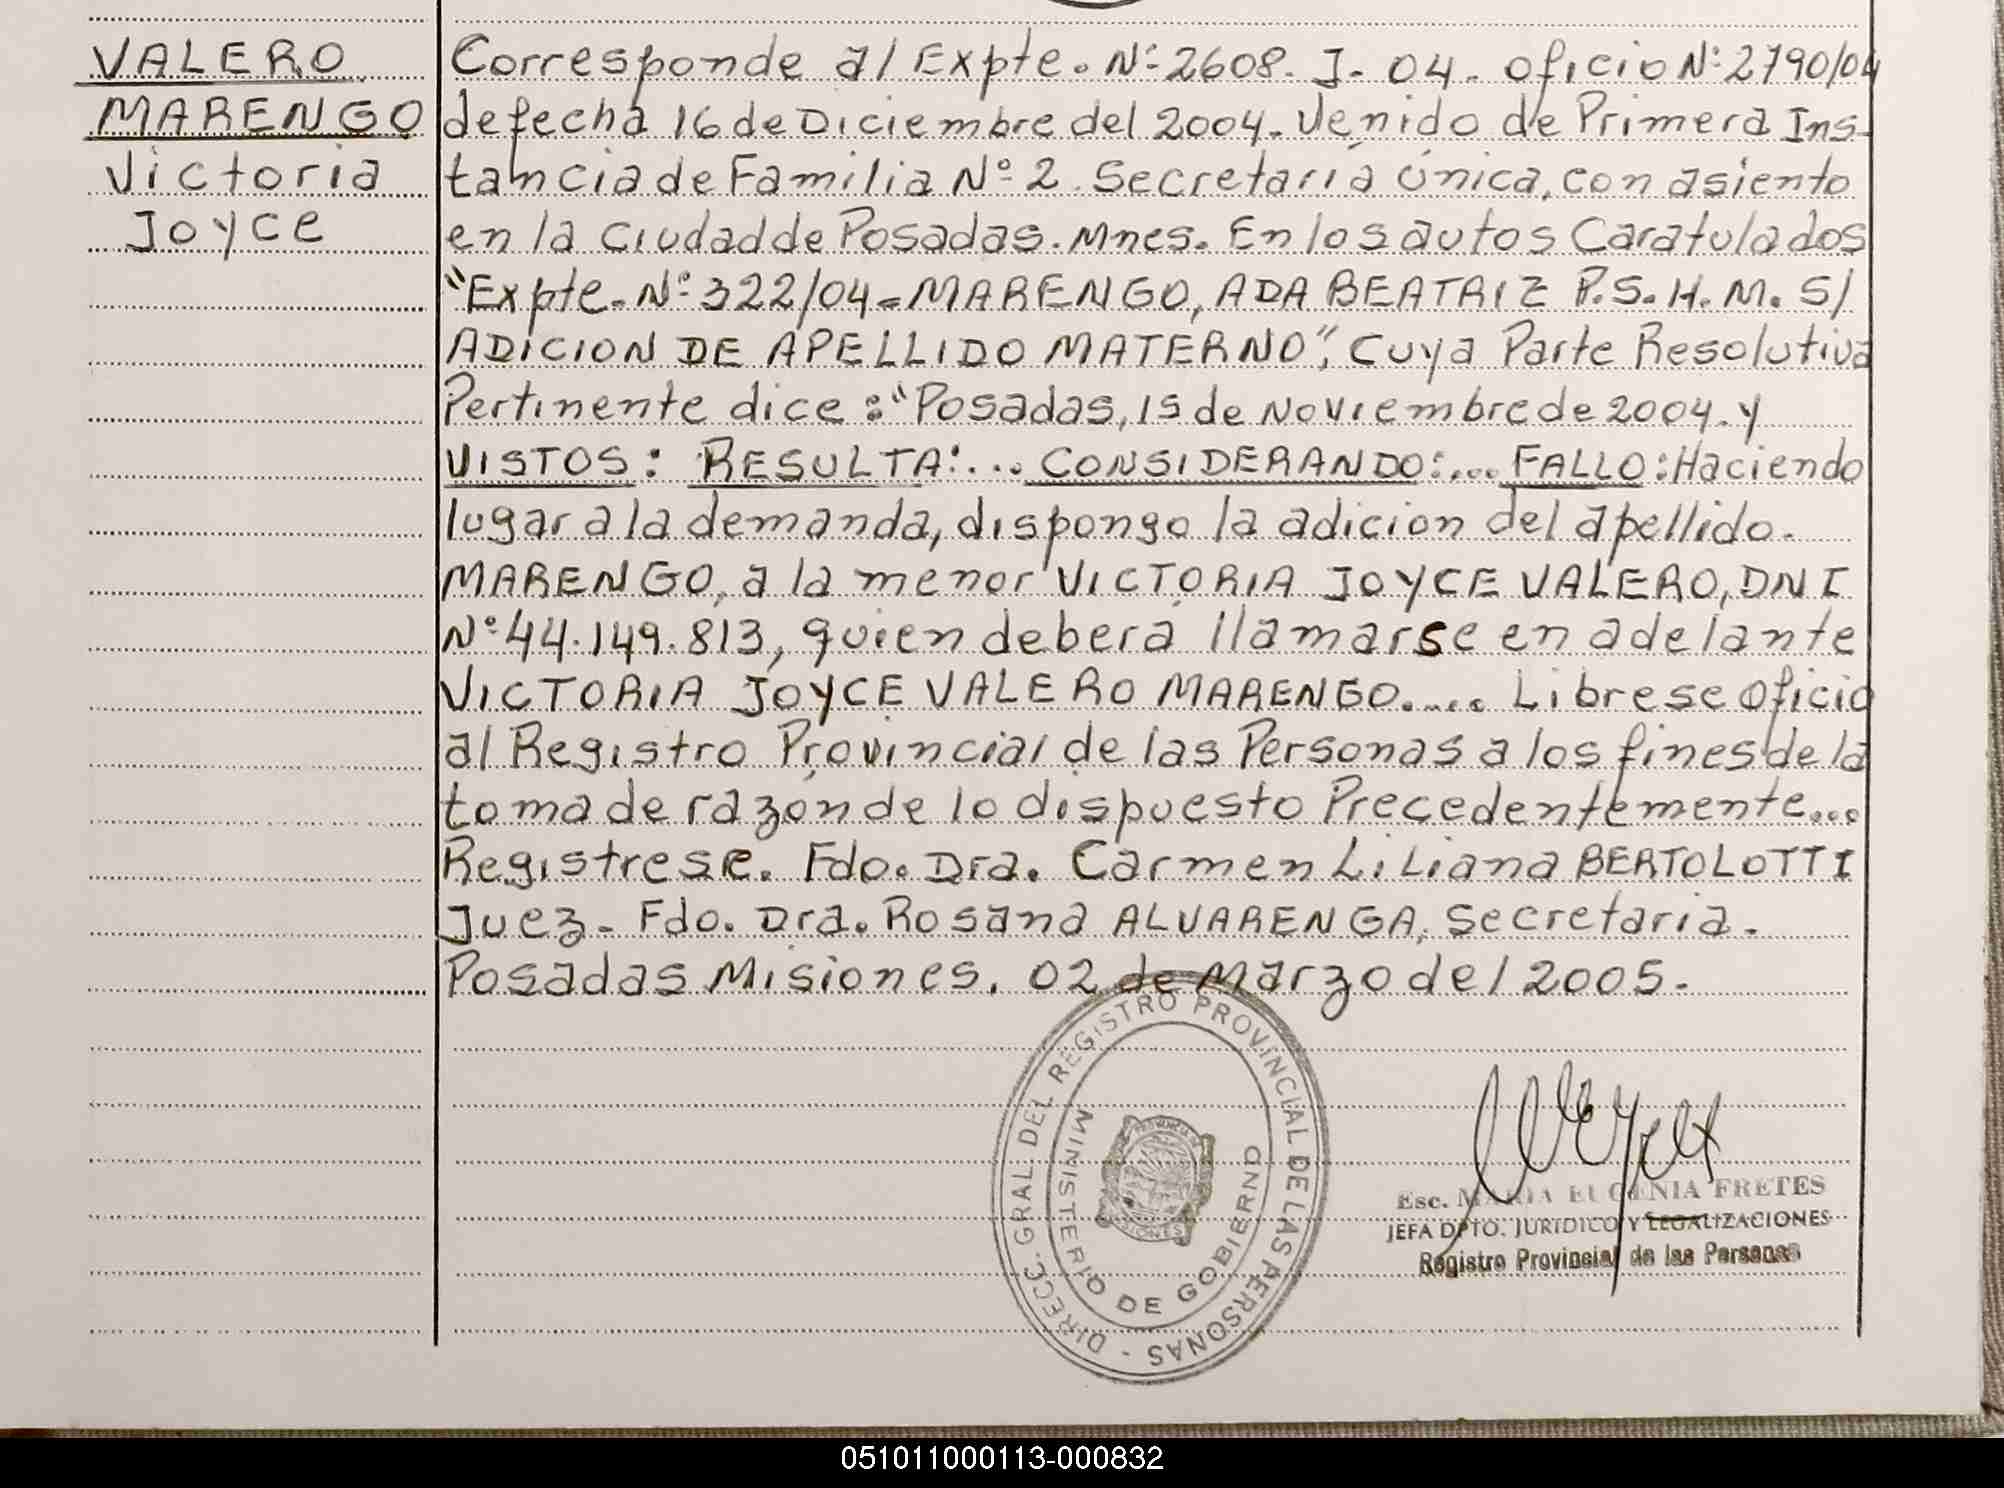 VALERO
MARENGO
Victoria
Joyce
Corresponde al Expte. Nº 2608. J. 04. oficio Nº 2790/04
de fecha 16 de Diciembre del 2004. Venido de Primera Ins-
tancia de Familia Nº 2. Secretaría Única, con asiento
en la Ciudad de Posadas. Mnes. En los autos Caratulados
"Expte. Nº 322/04 = MARENGO, ADA BEATRIZ P.S.H.M. S/
ADICION DE APELLIDO MATERNO", cuya Parte Resolutiva
Pertinente dice: "Posadas, 15 de Noviembre de 2004. y
VISTOS: RESULTA:... CONSIDERANDO:... FALLO: Haciendo
lugar a la demanda, dispongo la adicion del apellido.
MARENGO, a la menor VICTORIA JOYCE VALERO, DNI
Nº 44.149.813, quien deberá llamarse en adelante
VICTORIA JOYCE VALERO MARENGO..... Librese oficio
al Registro Provincial de las Personas a los fines de la
toma de razón de lo dispuesto Precedentemente...
Registrese. Fdo. Dra. Carmen Liliana BERTOLOTTI
Juez - Fdo. Dra. Rosana ALVARENGA, Secretaria.
Posadas Misiones, 02 de Marzo del 2005.
DIRECC. GRAL. DEL REGISTRO PROVINCIAL DE LAS PERSONAS -
MINISTERIO DE GOBIERNO
Esc. MARIA EUGENIA FRETES
JEFA DPTO. JURIDICO Y LEGALIZACIONES
Registro Provincial de las Personas
051011000113-000832